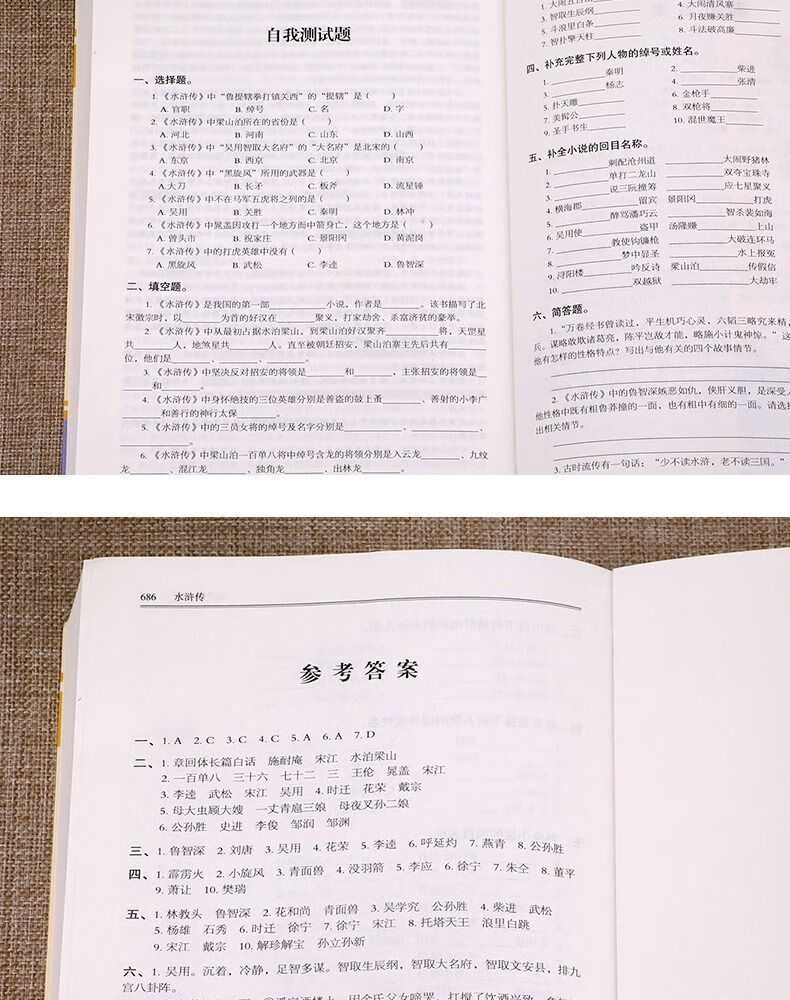 自我测试题
一、选择题。
1.《水浒传》中“鲁提辖拳打镇关西”的“提辖”是（ ）
A. 官职 B. 绰号 C. 名 D. 字
2.《水浒传》中梁山泊所在的省份是（ ）
A. 河北 B. 河南 C. 山东 D. 山西
3.《水浒传》中“吴用智取大名府”的“大名府”是北宋的（ ）
A. 东京 B. 西京 C. 北京 D. 南京
4.《水浒传》中“黑旋风”所用的武器是（ ）
A.大刀 B. 长矛 C. 板斧 D. 流星锤
5.《水浒传》中不在马军五虎将之列的是（ ）
A. 吴用 B. 关胜 C. 秦明 D. 林冲
6.《水浒传》中晁盖因攻打一个地方而中箭身亡，这个地方是（ ）
A. 曾头市 B. 祝家庄 C. 景阳冈 D. 黄泥岗
7.《水浒传》中的打虎英雄中没有（ ）
A. 黑旋风 B. 武松 C. 李逵 D. 鲁智深
二、填空题。
1.《水浒传》是我国的第一部________小说，作者是________。该书描写了北
宋徽宗时，以________为首的好汉在________聚义，打家劫舍、杀富济贫的豪举。
2.《水浒传》中从最初占据水泊梁山，到梁山泊好汉聚齐________将，天罡星
共________人，地煞星共________人。直至被朝廷招安，梁山泊寨主先后共有____
位，他们是________、________、________。
3.《水浒传》中坚决反对招安的将领是________和________，主张招安的将领是
____和____。
4.《水浒传》中身怀绝技的三位英雄分别是善盗的鼓上蚤________、善射的小李广
________和善行的神行太保________。
5.《水浒传》中的三员女将的绰号及名字分别是________、________、
________。
6.《水浒传》中梁山泊一百单八将中绰号含龙的将领分别是入云龙________、九纹
龙________、混江龙________、独角龙________、出林龙________。
3. 智取生辰纲________ 4. 大闹清风寨________
5. 斗浪里白条________ 6. 月夜赚关胜________
7. 智扑擎天柱________ 8. 斗法破高廉________
四、补充完整下列人物的绰号或姓名。
1.________秦明 2.________柴进
3.________杨志 4.________张清
5. 扑天雕________ 6. 金枪手________
7. 美髯公________ 8. 双枪将________
9. 圣手书生________ 10. 混世魔王________
五、补全小说的回目名称。
1.________刺配沧州道 ________大闹野猪林
2.________单打二龙山 ________双夺宝珠寺
3.________说三阮撞筹 ________应七星聚义
4. 横海郡________留宾 景阳冈________打虎
5.________醉骂潘巧云 ________智杀裴如海
6. 吴用使________盗甲 汤隆赚________上山
7.________教使钩镰枪 ________大破连环马
8.________梦中显圣 ________水上报冤
9. 浔阳楼________吟反诗 梁山泊________传假信
10.________双越狱 ________大劫牢
六、简答题。
1.“万卷经书曾读过，平生机巧心灵，六韬三略究来精，
兵。谋略敢欺诸葛亮，陈平岂敌才能，略施小计鬼神惊。”这
他有怎样的性格特点？写出与他有关的四个故事情节。
2.《水浒传》中的鲁智深嫉恶如仇，侠肝义胆，是深受人
他性格中既有粗鲁莽撞的一面，也有粗中有细的一面。请选择
出相关情节。
3. 古时流传有一句话：“少不读水浒，老不读三国。”
686 水浒传
参考答案
一、1. A 2. C 3. C 4. C 5. A 6. A 7. D
二、1. 章回体长篇白话 施耐庵 宋江 水泊梁山
2. 一百单八 三十六 七十二 三 王伦 晁盖 宋江
3. 李逵 武松 宋江 吴用 4. 时迁 花荣 戴宗
5. 母大虫顾大嫂 一丈青扈三娘 母夜叉孙二娘
6. 公孙胜 史进 李俊 邹润 邹渊
三、1. 鲁智深 2. 刘唐 3. 吴用 4. 花荣 5. 李逵 6. 呼延灼 7. 燕青 8. 公孙胜
四、1. 霹雳火 2. 小旋风 3. 青面兽 4. 没羽箭 5. 李应 6. 徐宁 7. 朱仝 8. 董平
9. 萧让 10. 樊瑞
五、1. 林教头 鲁智深 2. 花和尚 青面兽 3. 吴学究 公孙胜 4. 柴进 武松
5. 杨雄 石秀 6. 时迁 徐宁 7. 徐宁 宋江 8. 托塔天王 浪里白跳
9. 宋江 戴宗 10. 解珍解宝 孙立孙新
六、1. 吴用。沉着，冷静，足智多谋。智取生辰纲，智取大名府，智取文安县，排九
宫八卦阵。